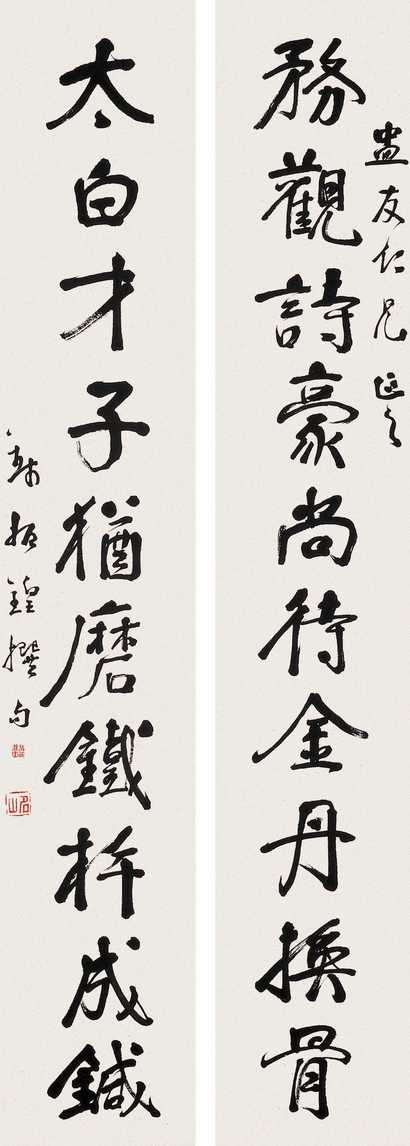 盅友仁兄正之
務觀詩豪尚待金丹換骨
太白才子猶磨鐵杵成鍼
錢振鍠撰句
名山